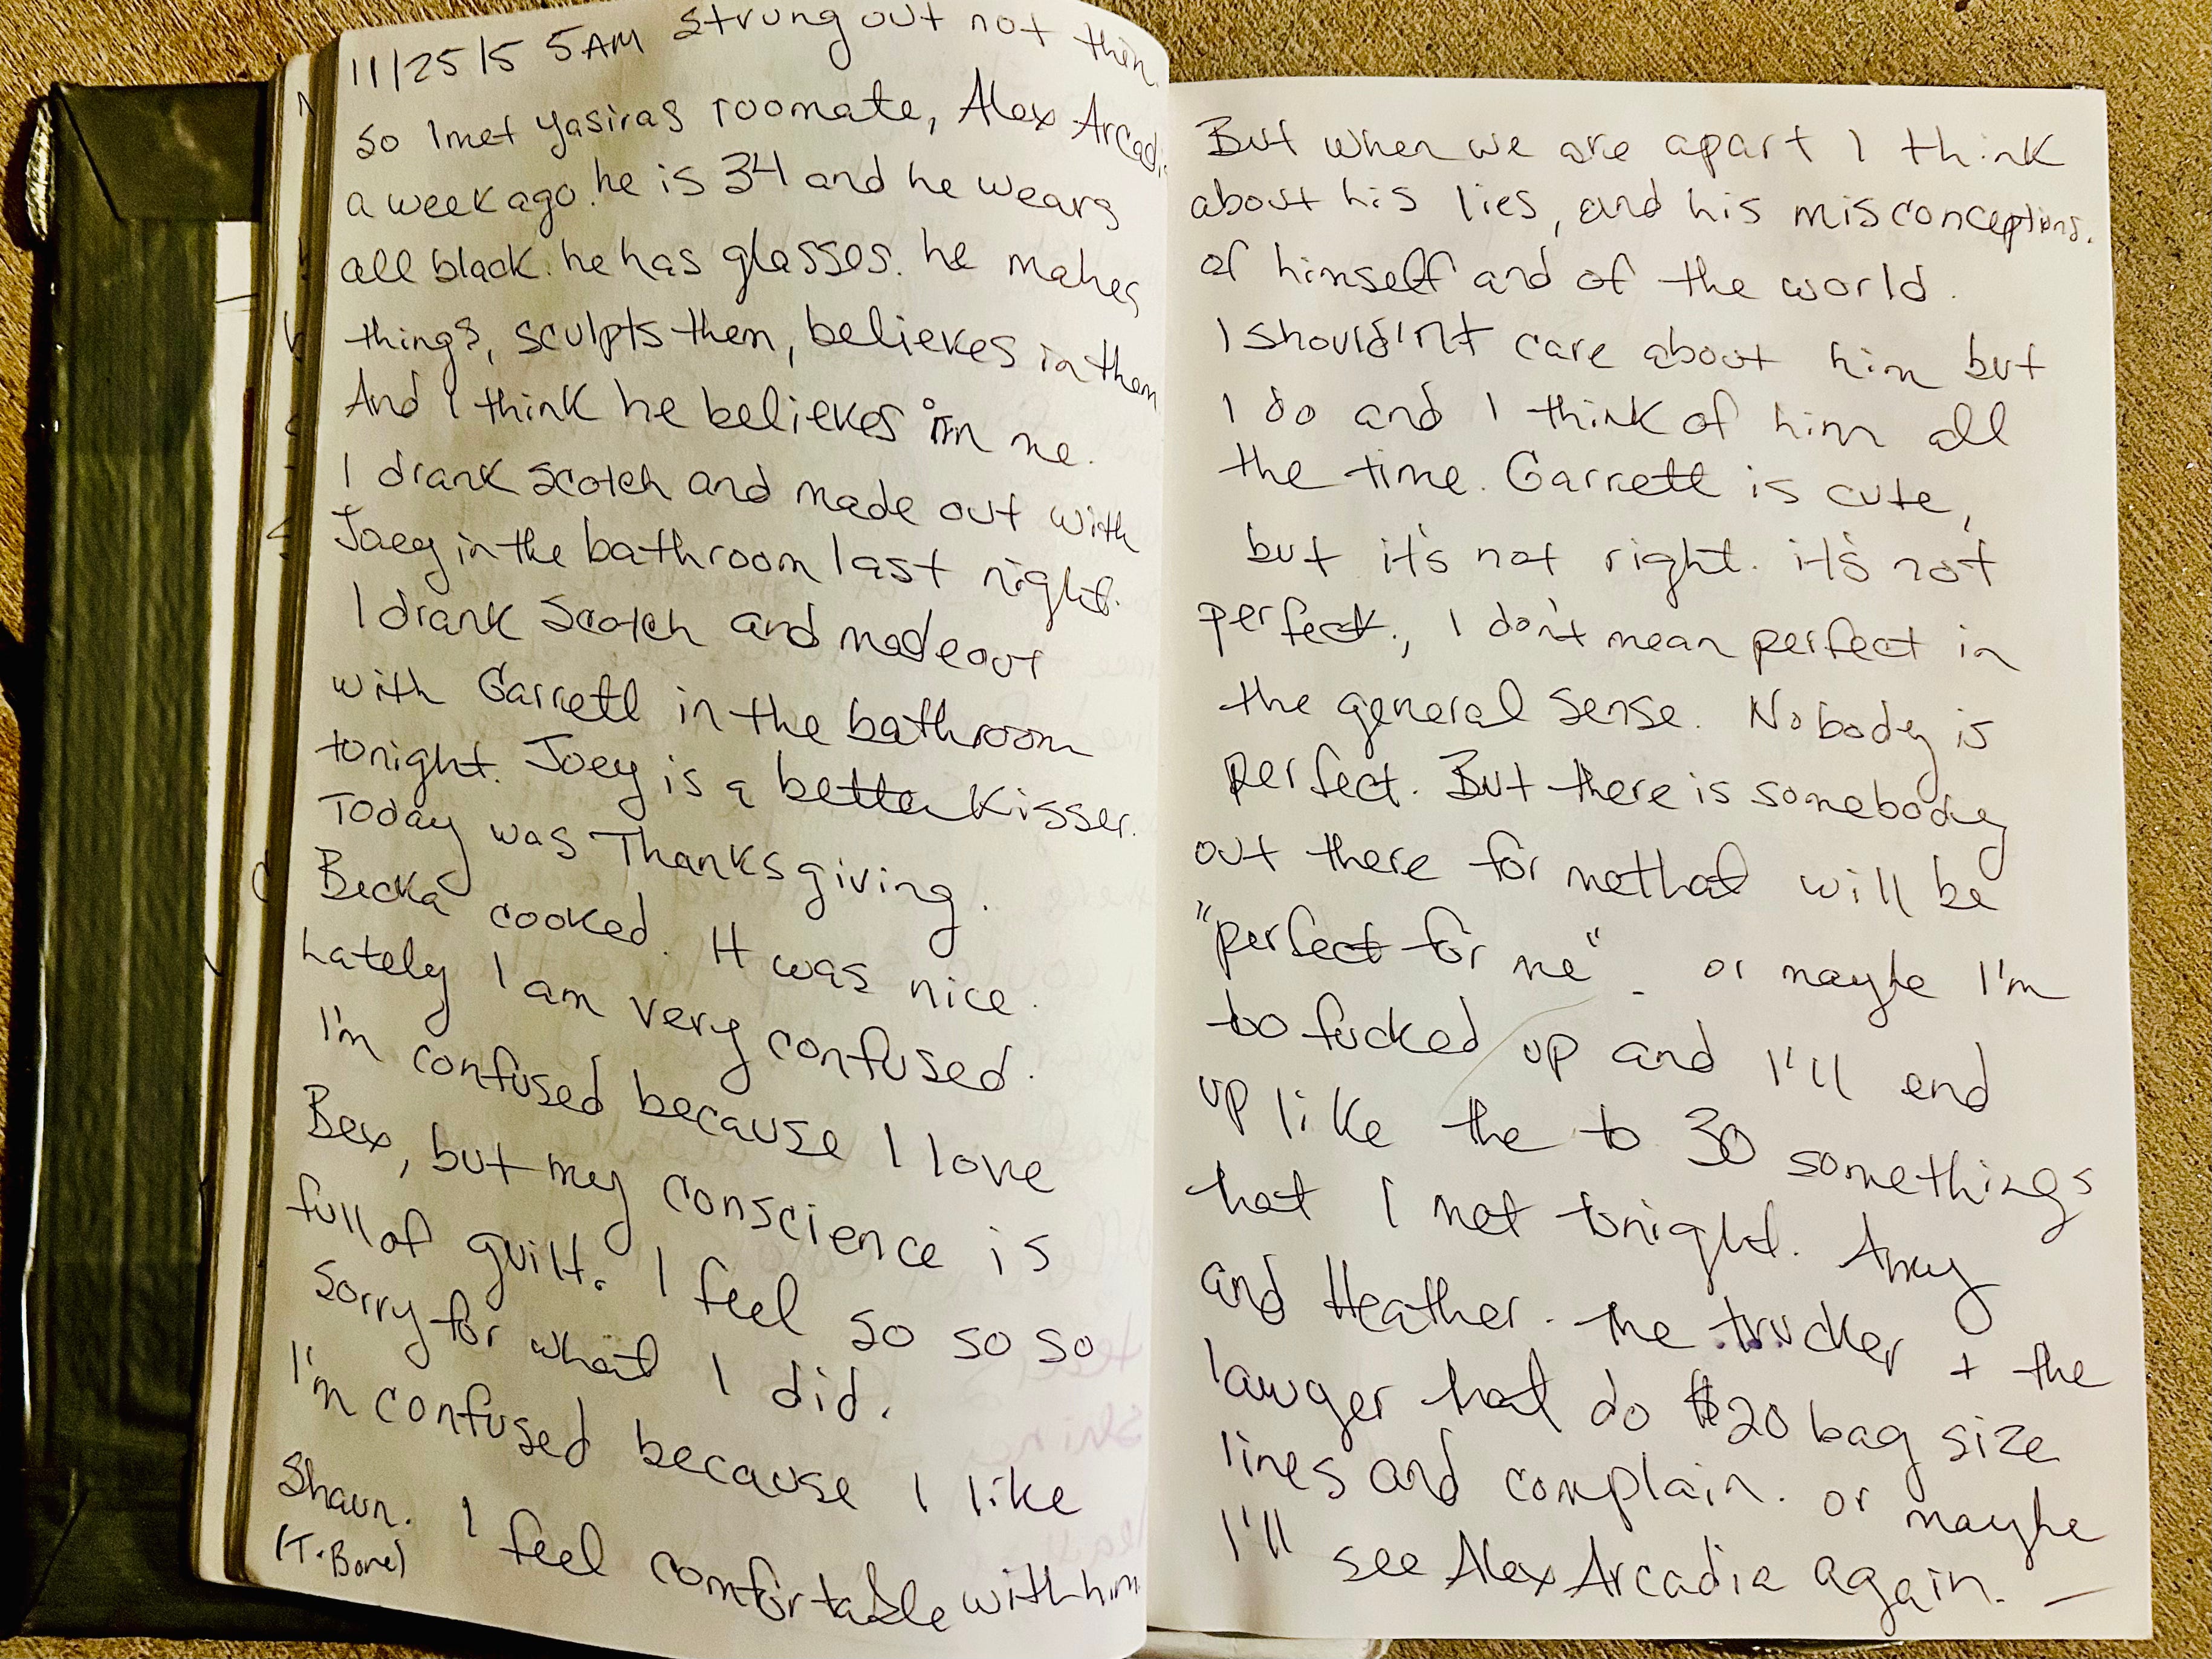 11/25/5 5AM Strung out not then.
So I met Yasiras roomate, Alex Arcadi
a week ago. he is 34 and he wears
all black. he has glasses. he makes
things, sculpts them, believes in them
And I think he believes in me.
I drank scotch and made out with
Joey in the bathroom last night.
I drank scotch and made out
with Garrett in the bathroom
tonight. Joey is a better kisser.
Today was Thanksgiving.
Becka cooked. It was nice.
Lately I am very confused.
I'm confused because I love
Bex, but my conscience is
full of guilt. I feel so so so
sorry for what I did.
I'm confused because I like
Shaun. I feel comfortable with him
(T-Bone)
But when we are apart I think
about his lies, and his misconceptions.
of himself and of the world.
I should'nt care about him but
I do and I think of him all
the time. Garrett is cute,
but it's not right. it's not
perfect., I don't mean perfect in
the general sense. Nobody is
perfect. But there is somebody
out there for me that will be
"perfect for me". or maybe I'm
to fucked up and I'll end
up like the to 30 somethings
that I met tonight. Amy
and Heather. the trucker + the
lawyer that do $20 bag size
lines and complain. or maybe
I'll see Alex Arcadia again. —